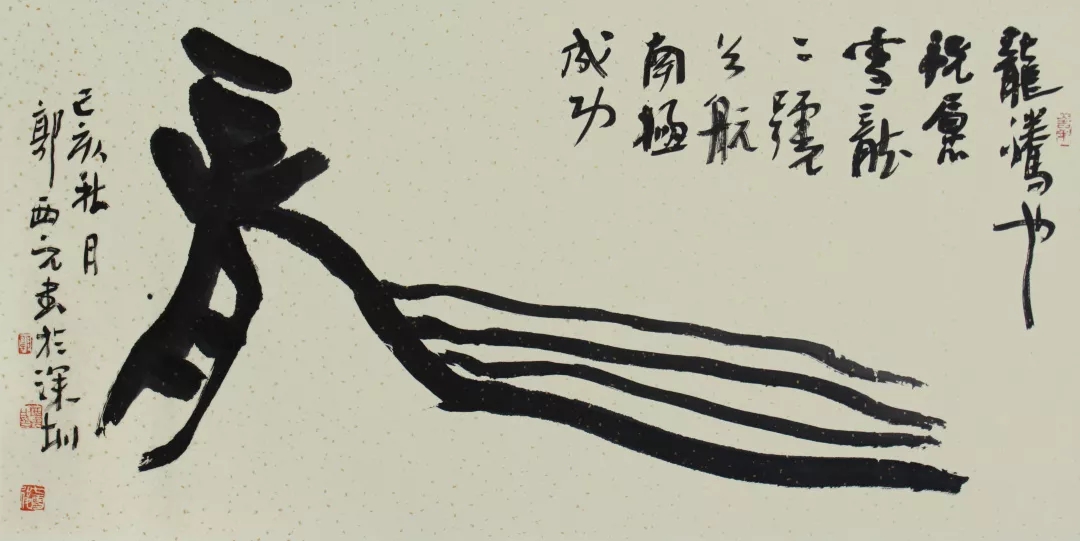 龍騰也
祝愿
雪龍
二號
首航
南極
成功
龍
己亥秋月
郭西元書於深圳